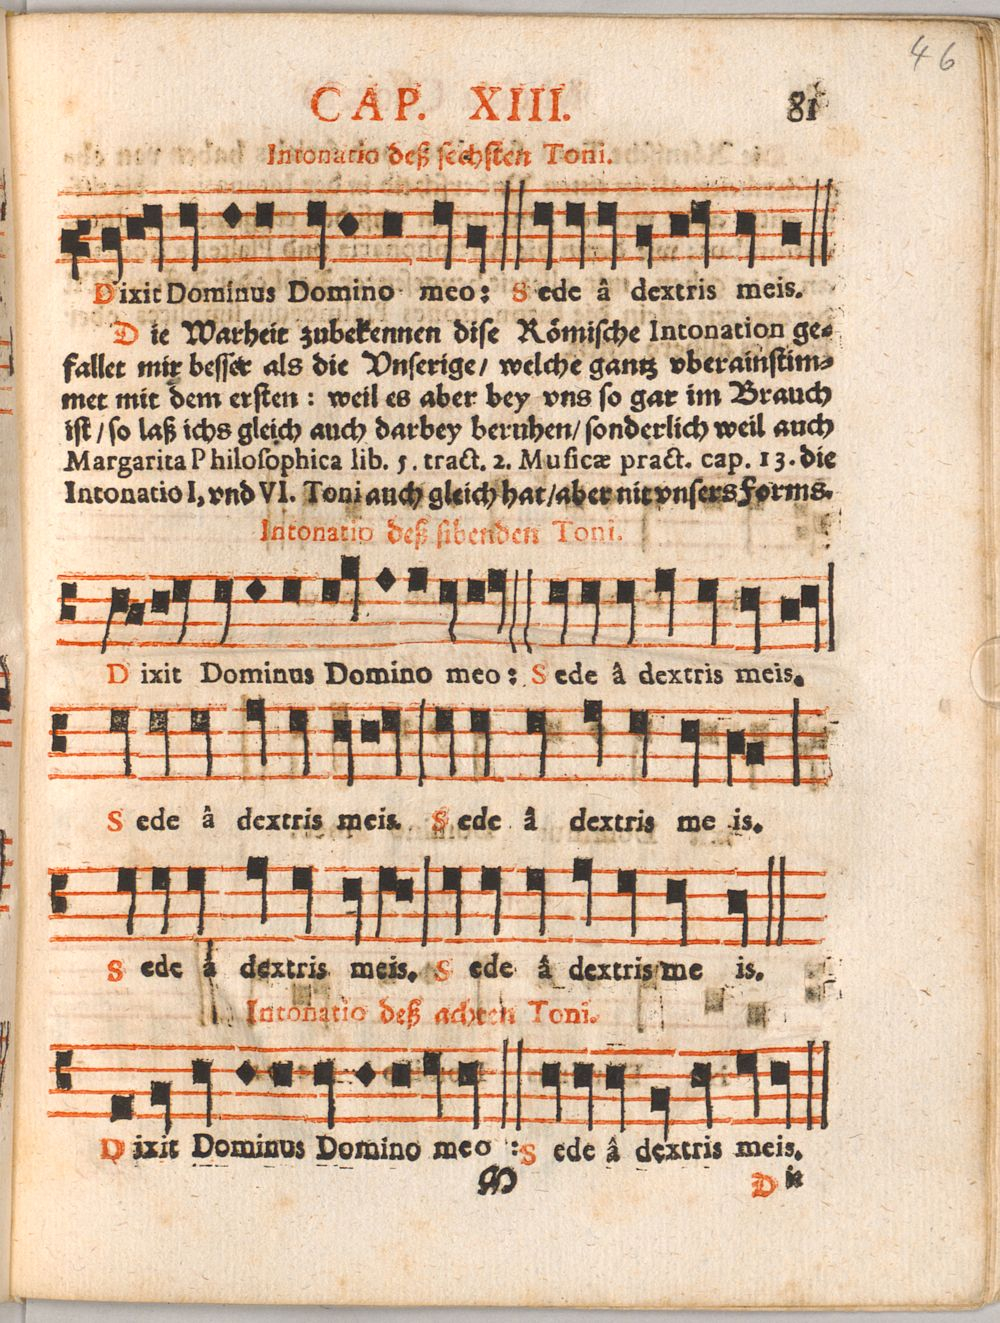 46
CAP. XIII. 81
Intonatio deß sechsten Toni.
Dixit Dominus Domino meo: Sede â dextris meis.
Die Warheit zubekennen dise Römische Intonation ge-
fallet mir besser als die Vnserige/ welche gantz vberainstim-
met mit dem ersten: weil es aber bey vns so gar im Brauch
ist/so laß ichs gleich auch darbey beruhen/sonderlich weil auch
Margarita Philosophica lib. 5. tract. 2. Musicæ pract. cap. 13. die
Intonatio I, vnd VI. Toni auch gleich hat/aber nit vnsers Forms.
Intonatio deß sibenden Toni.
Dixit Dominus Domino meo: Sede â dextris meis.
Sede â dextris meis. Sede â dextris me is.
Sede â dextris meis. Sede â dextris me is.
Intonatio deß achten Toni.
Dixit Dominus Domino meo: Sede â dextris meis.
Die